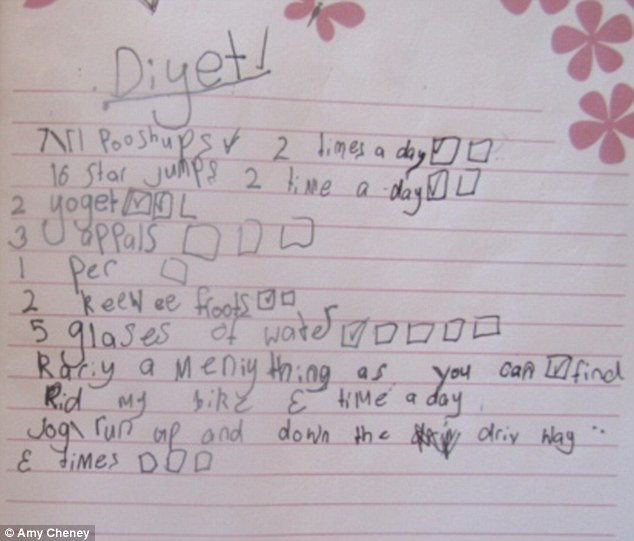 Diyet!
Pooshups 2 times a day
16 star jumps 2 time a day
2 yoget
3 appals
1 per
2 keewee froots
5 glases of water
Rariy a meniything as you can find
Rid my bike 3 time a day
Jog run up and down the driv way
3 times
© Amy Cheney